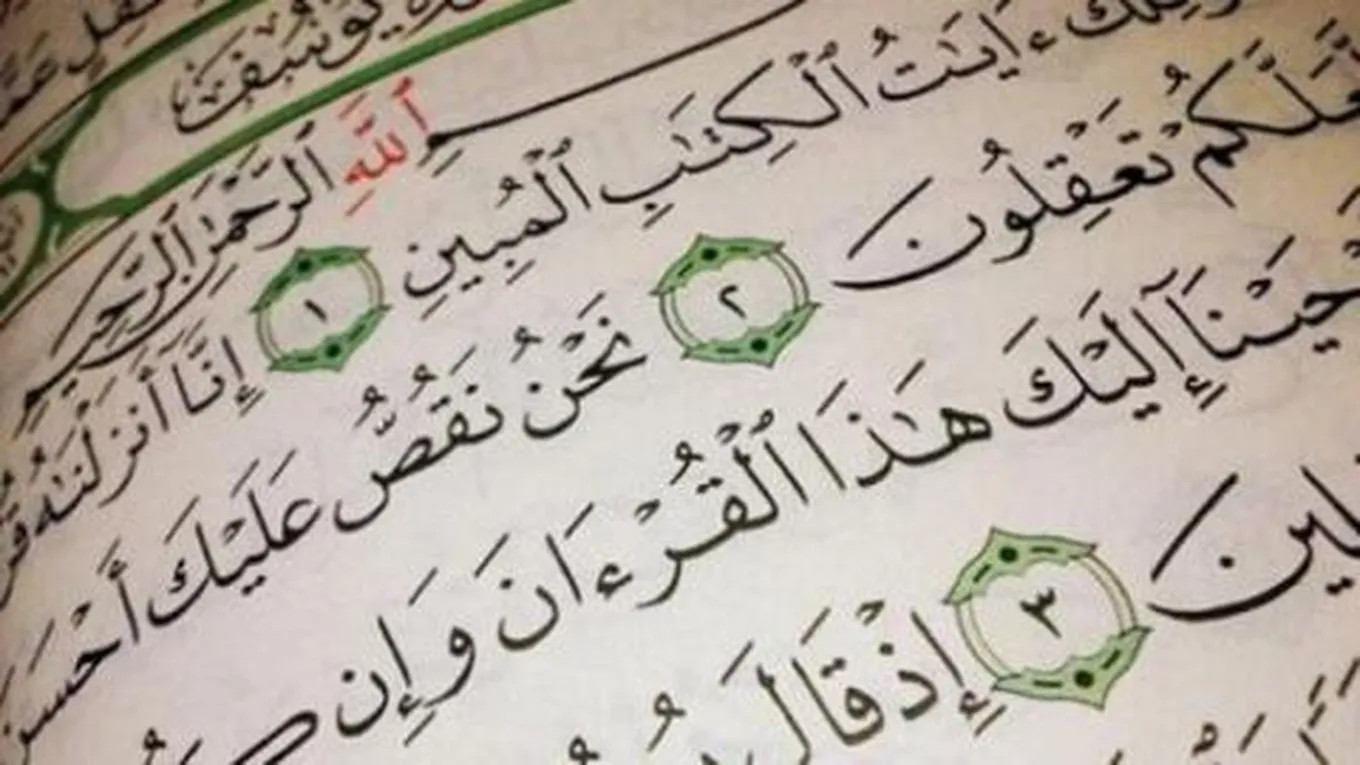 يوسف
ٱللَّهِ ٱلرَّحْمَٰنِ ٱلرَّحِيمِ
ءَايَٰتُ ٱلْكِتَٰبِ ٱلْمُبِينِ ١ إِنَّآ أَنزَلْنَٰهُ
لَّعَلَّكُمْ تَعْقِلُونَ ٢ نَحْنُ نَقُصُّ عَلَيْكَ أَحْسَنَ
إِلَيْكَ هَٰذَا ٱلْقُرْءَانَ وَإِن
٣ إِذْ قَالَ